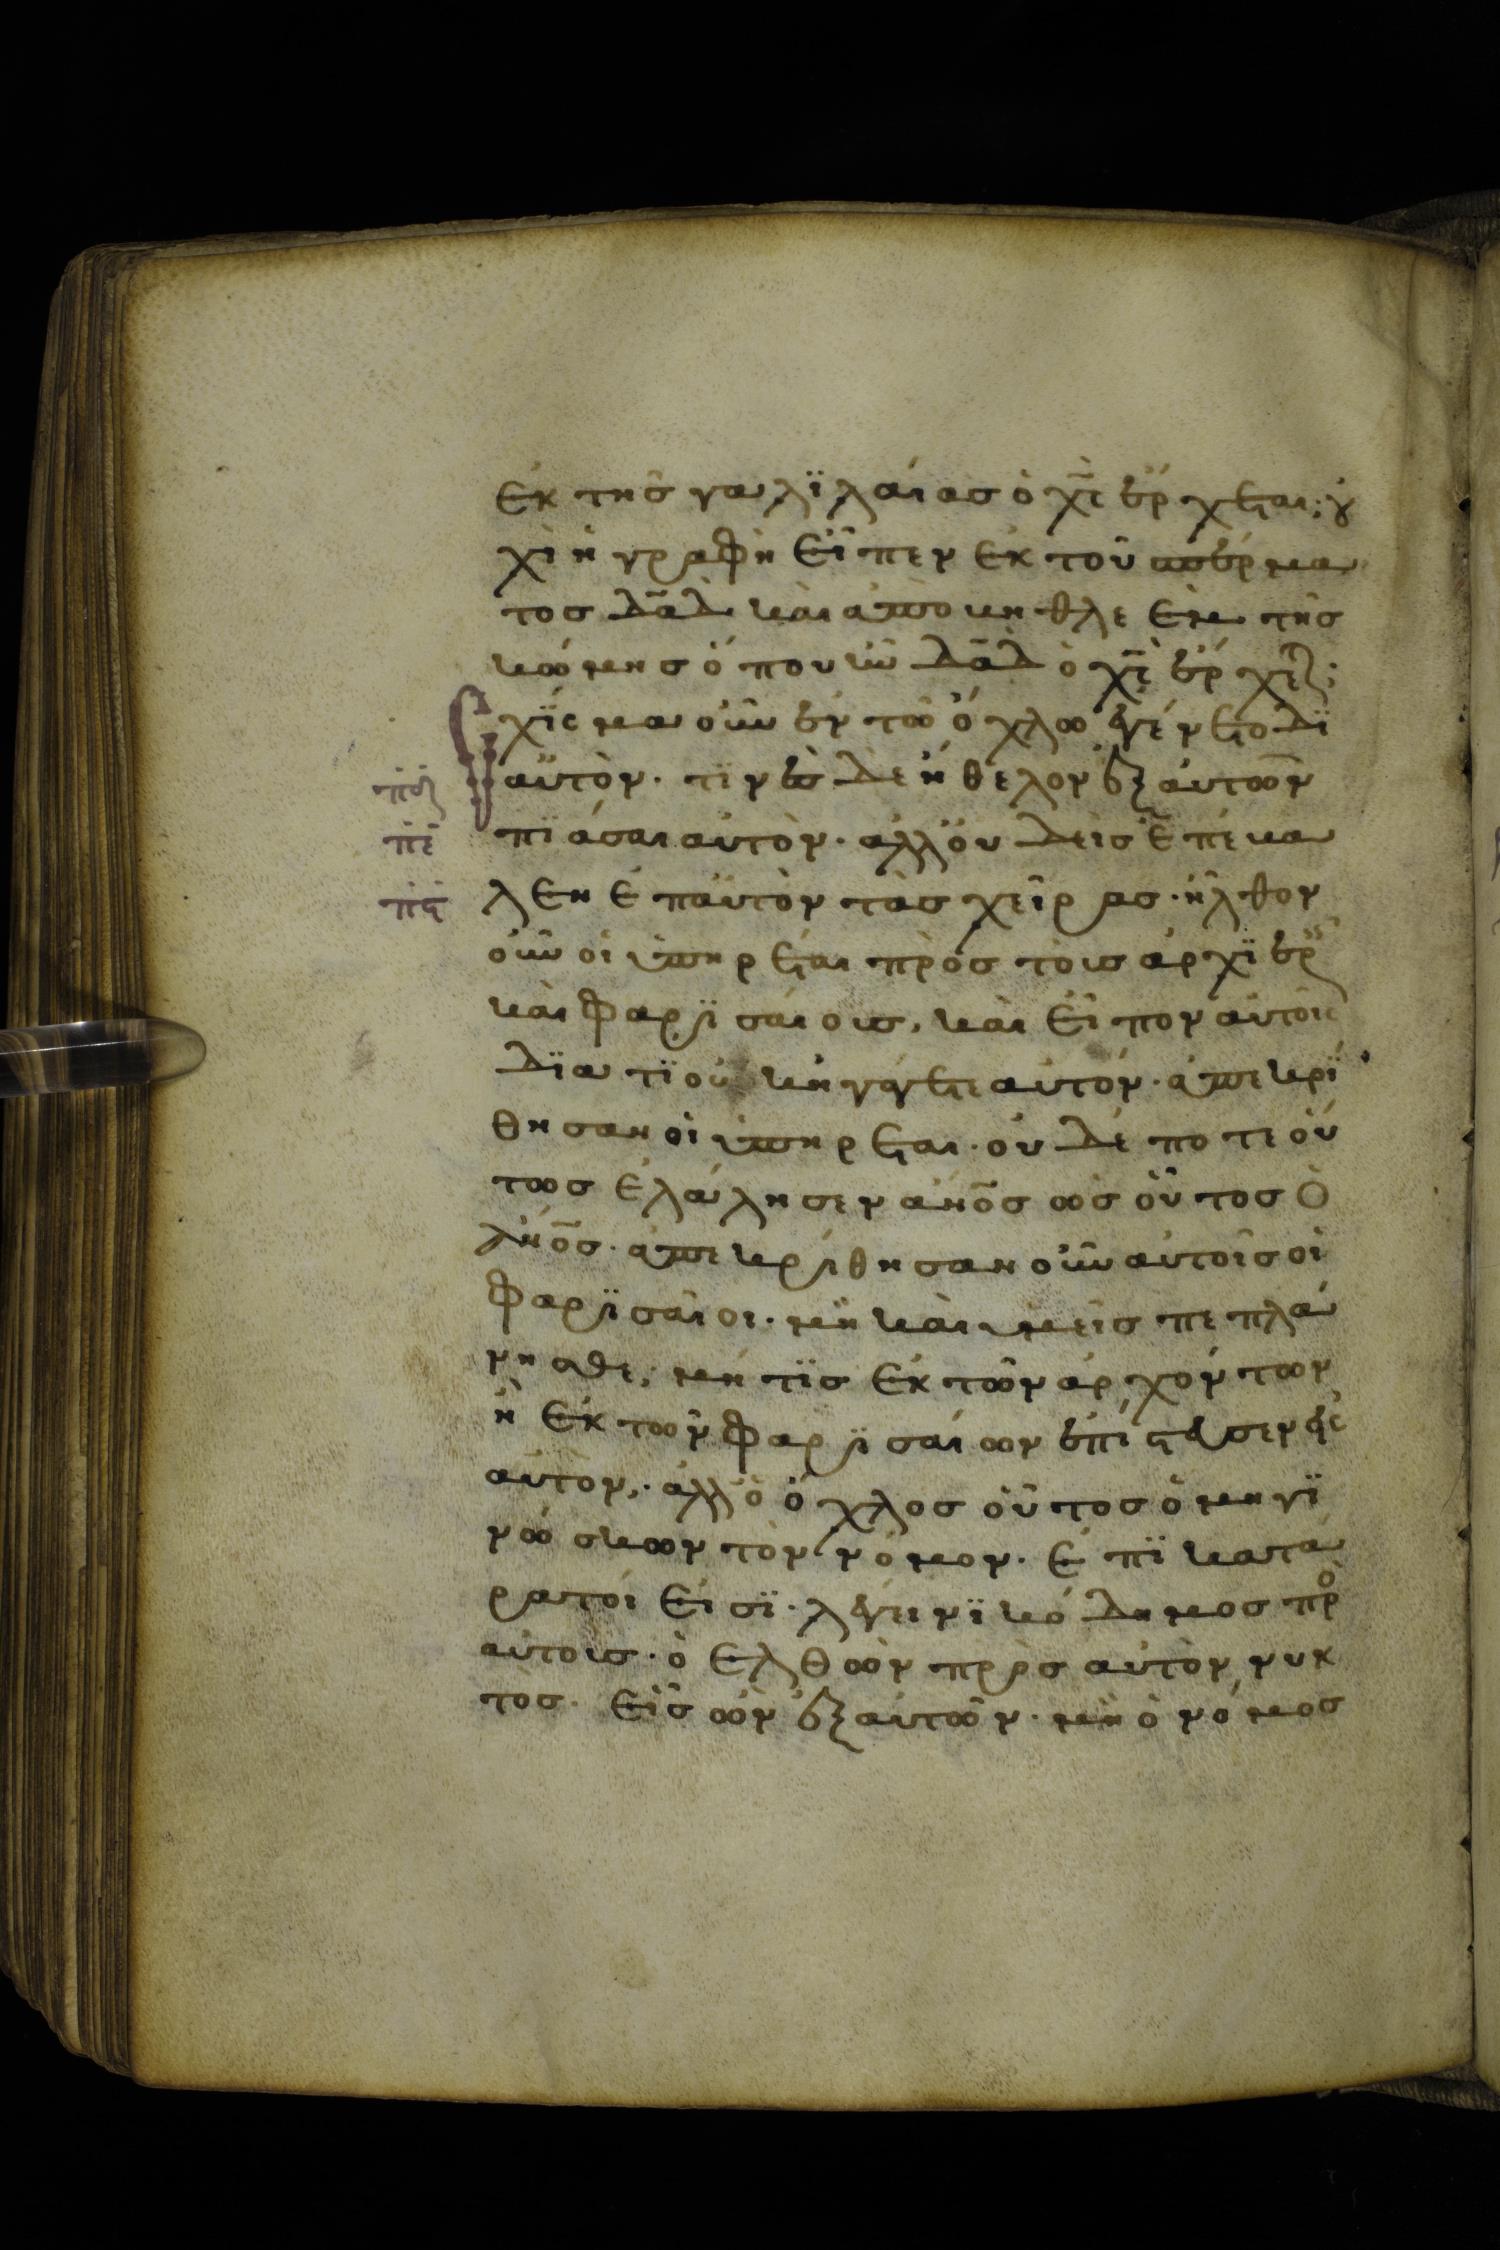 ἐκ τῆσ γαλϊλαίασ ὁ χ̅ε̅ ἔρχεται; ου
χὶ ἡ γραφὴ εἶπεν ἐκ τοῦ σπέρμα
τοσ δ̅α̅δ̅ καὶ ἀπο κηθλεὲμ τῆσ
κώμησ ὅπου ἦν δ̅α̅δ̅ ὁ χ̅ε̅ ἔρχεται;
Σχϊσμα οὖν ἐν τῶ ὄχλω ἐγένετο δϊ
αὐτὸν. τϊνὲσ δὲ ἤθελον ἐξ αὐτῶν
πε πϊάσαι αὐτὸν. ἀλλ οὐδεὶσ ἐπέκα
πϛ λεν ἐπ αὐτὸν τὰσ χεῖρασ. ἦλθον
οὖν οἱ ὑπηρέται πρὸσ τοὺσ ἀρχϊερεῖσ
καὶ φαρϊσαίουσ, καὶ εἶπον αὐτοῖσ
δϊατϊ οὐκ ἠγάγετε αὐτόν. ἀπεκρϊ
θησαν οἱ ὑπηρέται. οὐδέποτε οὕ
τωσ ἐλάλησεν α̅ν̅ο̅σ̅ ὡσ οὗτοσ ὁ
α̅ν̅ο̅σ̅. ἀπεκρίθησαν οὖν αὐτοῖσ οἱ
φαρϊσαῖοι. μὴ καὶ ὑμεῖσ πεπλά
νησθε; μή τϊσ ἐκ τῶν ἀρχόντων
ἢ ἐκ τῶν φαρϊσαίων ἐπίστευσεν εἰσ
αὐτὸν;. ἀλλ ὁ ὄχλοσ οὗτοσ ὁ μὴ γϊ
νώσκων τὸν νόμον. ἐπϊκατά
ρατοί εἰσϊ. λέγει νϊκόδημοσ πρ̊
αὐτοὺσ. ὁ ἐλθὼν πρὸσ αὐτὸν νυκ
τοσ. εἷσ ὢν ἐξ αὐτῶν. μὴ ὁ νόμοσ